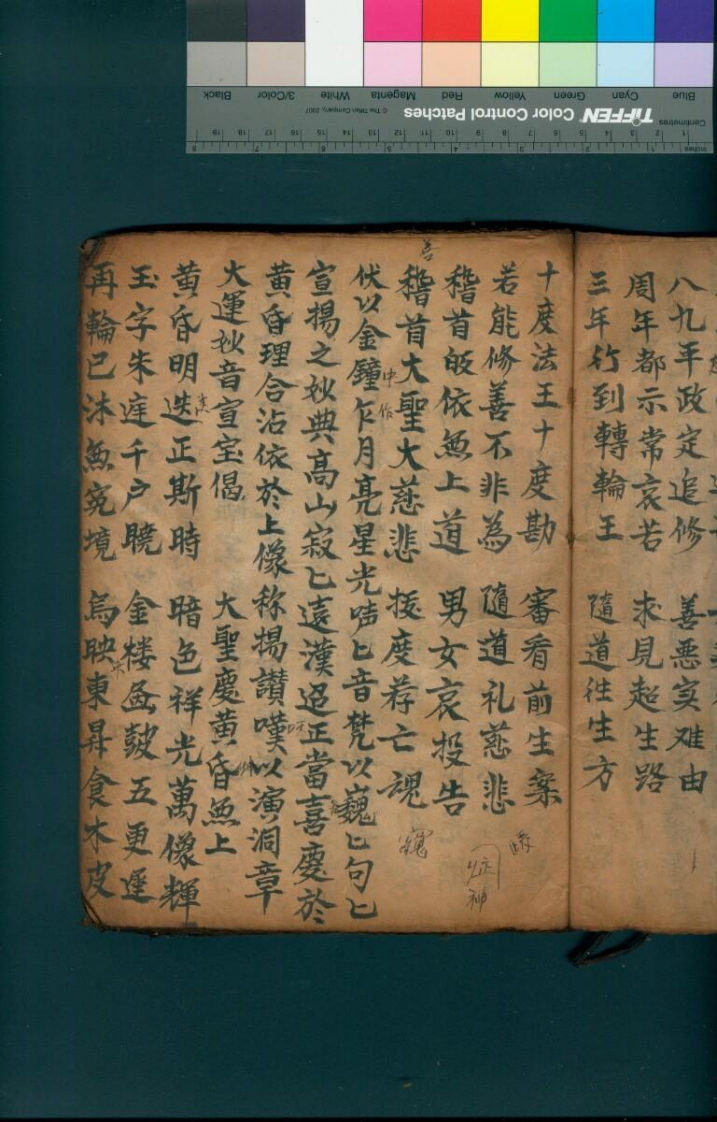 八九年政定追修 善惡实难由
周年都示常哀若 求見超生路
三年行到轉輪王 隨道往生方
十度法王十度勘 審看前生案
若能修善不非為 隨道礼慈悲
稽首皈依無上道 男女哀投告
稽首大聖大慈悲 接度荐亡魂
伏以金鐘乍月亮星光吽匕音梵以巍匕句匕
宣揚之妙典高山寂匕遠漢迢正當喜慶於
黄昏理合沾依於上像称揚讃嘆以演洞章
大運妙音宣宝偈 大聖慶黄昏無上
黄昏明迭正斯時 暗色祥光萬像輝
玉字朱连千户曉 金楼畫皷五更遲
再輪已沐無穷境 烏映東昇食木皮
TIFFEN Color Control Patches
© The Tiffen Company, 2007
Blue Cyan Green Yellow Red Magenta White 3/Color Black
Centimetres
Inches